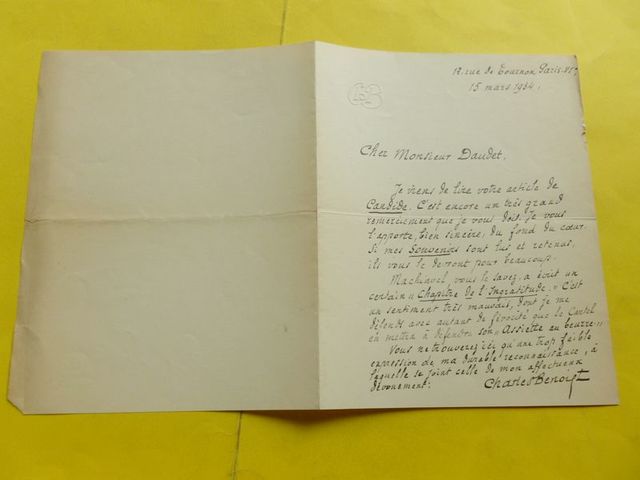 12 rue de Tournon Paris VIe
15 mars 1934.
CB
Cher Monsieur Daudet,
Je viens de lire votre article de
Candide. C'est encore un très grand
remerciement que je vous dois, je vous
l'apporte, bien sincère, du fond du cœur.
Si mes Souvenirs sont lus et retenus,
ils vous le devront pour beaucoup.
Machiavel, vous le savez, a écrit un
certain « Chapitre de l'Ingratitude. » C'est
un sentiment très mauvais, dont je me
défends avec autant de férocité que le Cartel
en mettra à défendre son « Assiette au beurre. »
Vous ne trouverez ici qu'une trop faible
expression de ma durable reconnaissance, à
laquelle se joint celle de mon affectueux
dévouement.
Charles Benoist